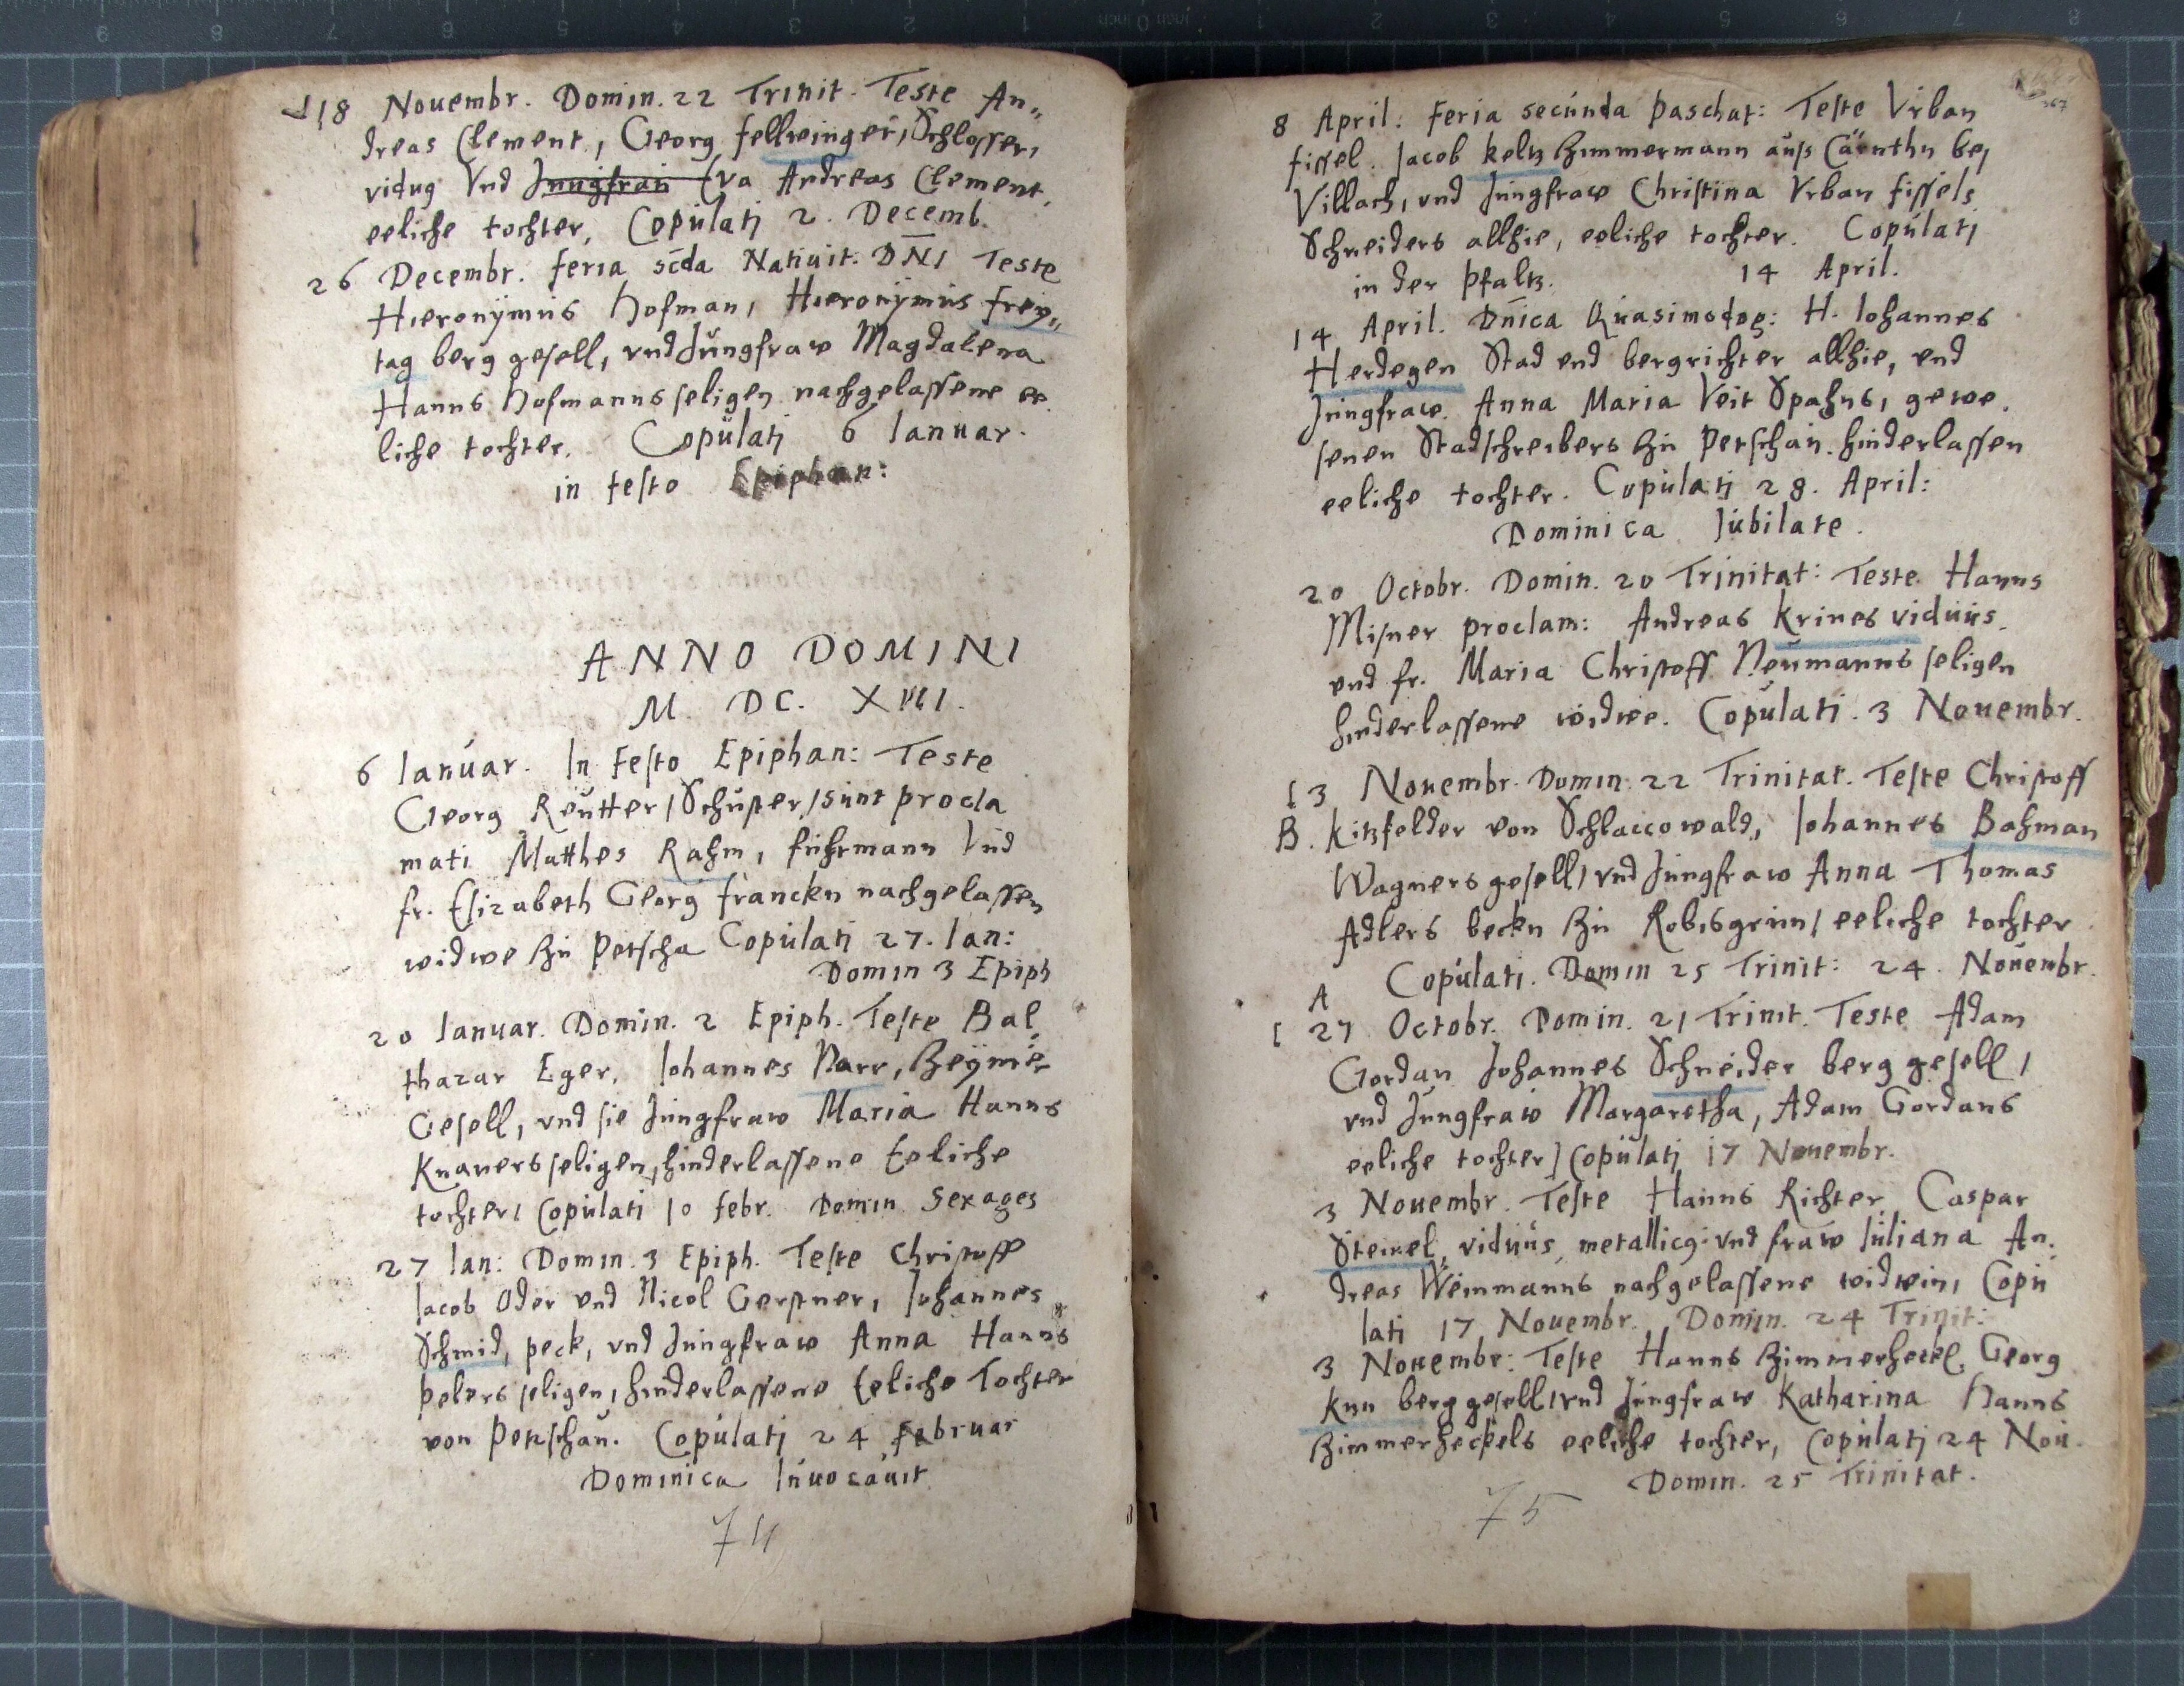 18 Nouembr. Domin. 22 Trinit. Teste An„
dreas Clement, Georg fellwinger, Schlosser,
vidug Vnd Jungfrau Eva Andreas Clement
eeliche tochter, Copulatj 2. Decemb.
26 Decembr. feria scda Natiuit. DNI Teste
Hieronÿmus Hofman, Hieronÿmus frey„
tag berg gesell, vnd Jungfraw Magdalena
Hanns Hofmanns seligen nachgelassene ee
liche tochter. Copulatj 6 Ianuar.
in festo Epiphan:
ANNO DOMINI
M DC. XVII.
6 Ianuar. In festo Epiphan: Teste
Georg Reutter, Schuster, sunt procla
mati Matthes Rahm, fuhrmann Vnd
fr. Elizabeth Georg francken nachgelassen
widwe zu Petscha Copulatj 27. Ian:
Domin 3 Epiph
20 Ianuar. Domin. 2 Epiph. Teste Bal
thazar Eger. Iohannes Narr,
Gesell, vnd sie Jungfraw Maria Hanns
Knauers seligen, hinderlassene Eeliche
tochter, Copulatj 10 febr. Domin Sexages
27 Ian: Domin. 3 Epiph. Teste Christoff
Iacob Oder vnd Nicol Gerstner, Iohannes
Schmid, peck, vnd Jungfraw Anna Hanns
Pelers seligen, hinderlassene Eeliche Tochter
von Petschau. Copulatj 24 februar
Dominica Inuocauit
74
8 April: feria secunda Paschat: Teste Vrban
fissel. Iacob Keltz Zimmermann auß Cärnthn bej
Villach, vnd Jungfraw Christina Vrban fissels
Schneiders allhie, eeliche tochter. Copulatj
in der Pfaltz. 14 April.
14 April. Dnica Quasimodog: H. Iohannes
Herdegen Stad vnd bergrichter allhie, vnd
Jungfraw Anna Maria Veit Spahns, gewe
senen Stadschreibers zu Petschau hinderlassen
eeliche tochter. Copulatj 28. April:
Dominica Iubilate.
20 Octobr. Domin. 20 Trinitat: Teste Hanns
Misner proclam: Andreas Krines viduus
vnd fr. Maria Christoff Neumanns seligen
hinderlassene widwe. Copulatj. 3 Nouembr.
[3 Nouembr. Domin. 22 Trinitat. Teste Christoff
B. Kitzfelder von Schlaccowald, Iohannes Bahman
Wagners gesell, vnd Jungfraw Anna Thomas
Adlers beckn zu Robisgrun, eeliche tochter
Copulatj. Domin 25 Trinit: 24 Nouembr.
A
[ 27 Octobr. Domin. 21 Trinit. Teste Adam
Gordan Johannes Schneider berg gesell,
vnd Jungfraw Margaretha, Adam Gordans
eeliche tochter] Copulatj 17 Nouembr.
3 Nouembr. Teste Hanns Richter Caspar
viduus, metallicg: vnd fraw Iuliana An
dreas Weinmanns nachgelassene widwin, Copu
latj 17 Nouembr. Domin. 24 Trinit:
3 Nouembr: Teste Hanns Zimmerheckel Georg
Knn berg gesell, vnd Jungfraw Katharina Hanns
Zimmerheckels eeliche tochter, Copulatj 24 Nou.
Domin. 25 Trinitat.
75